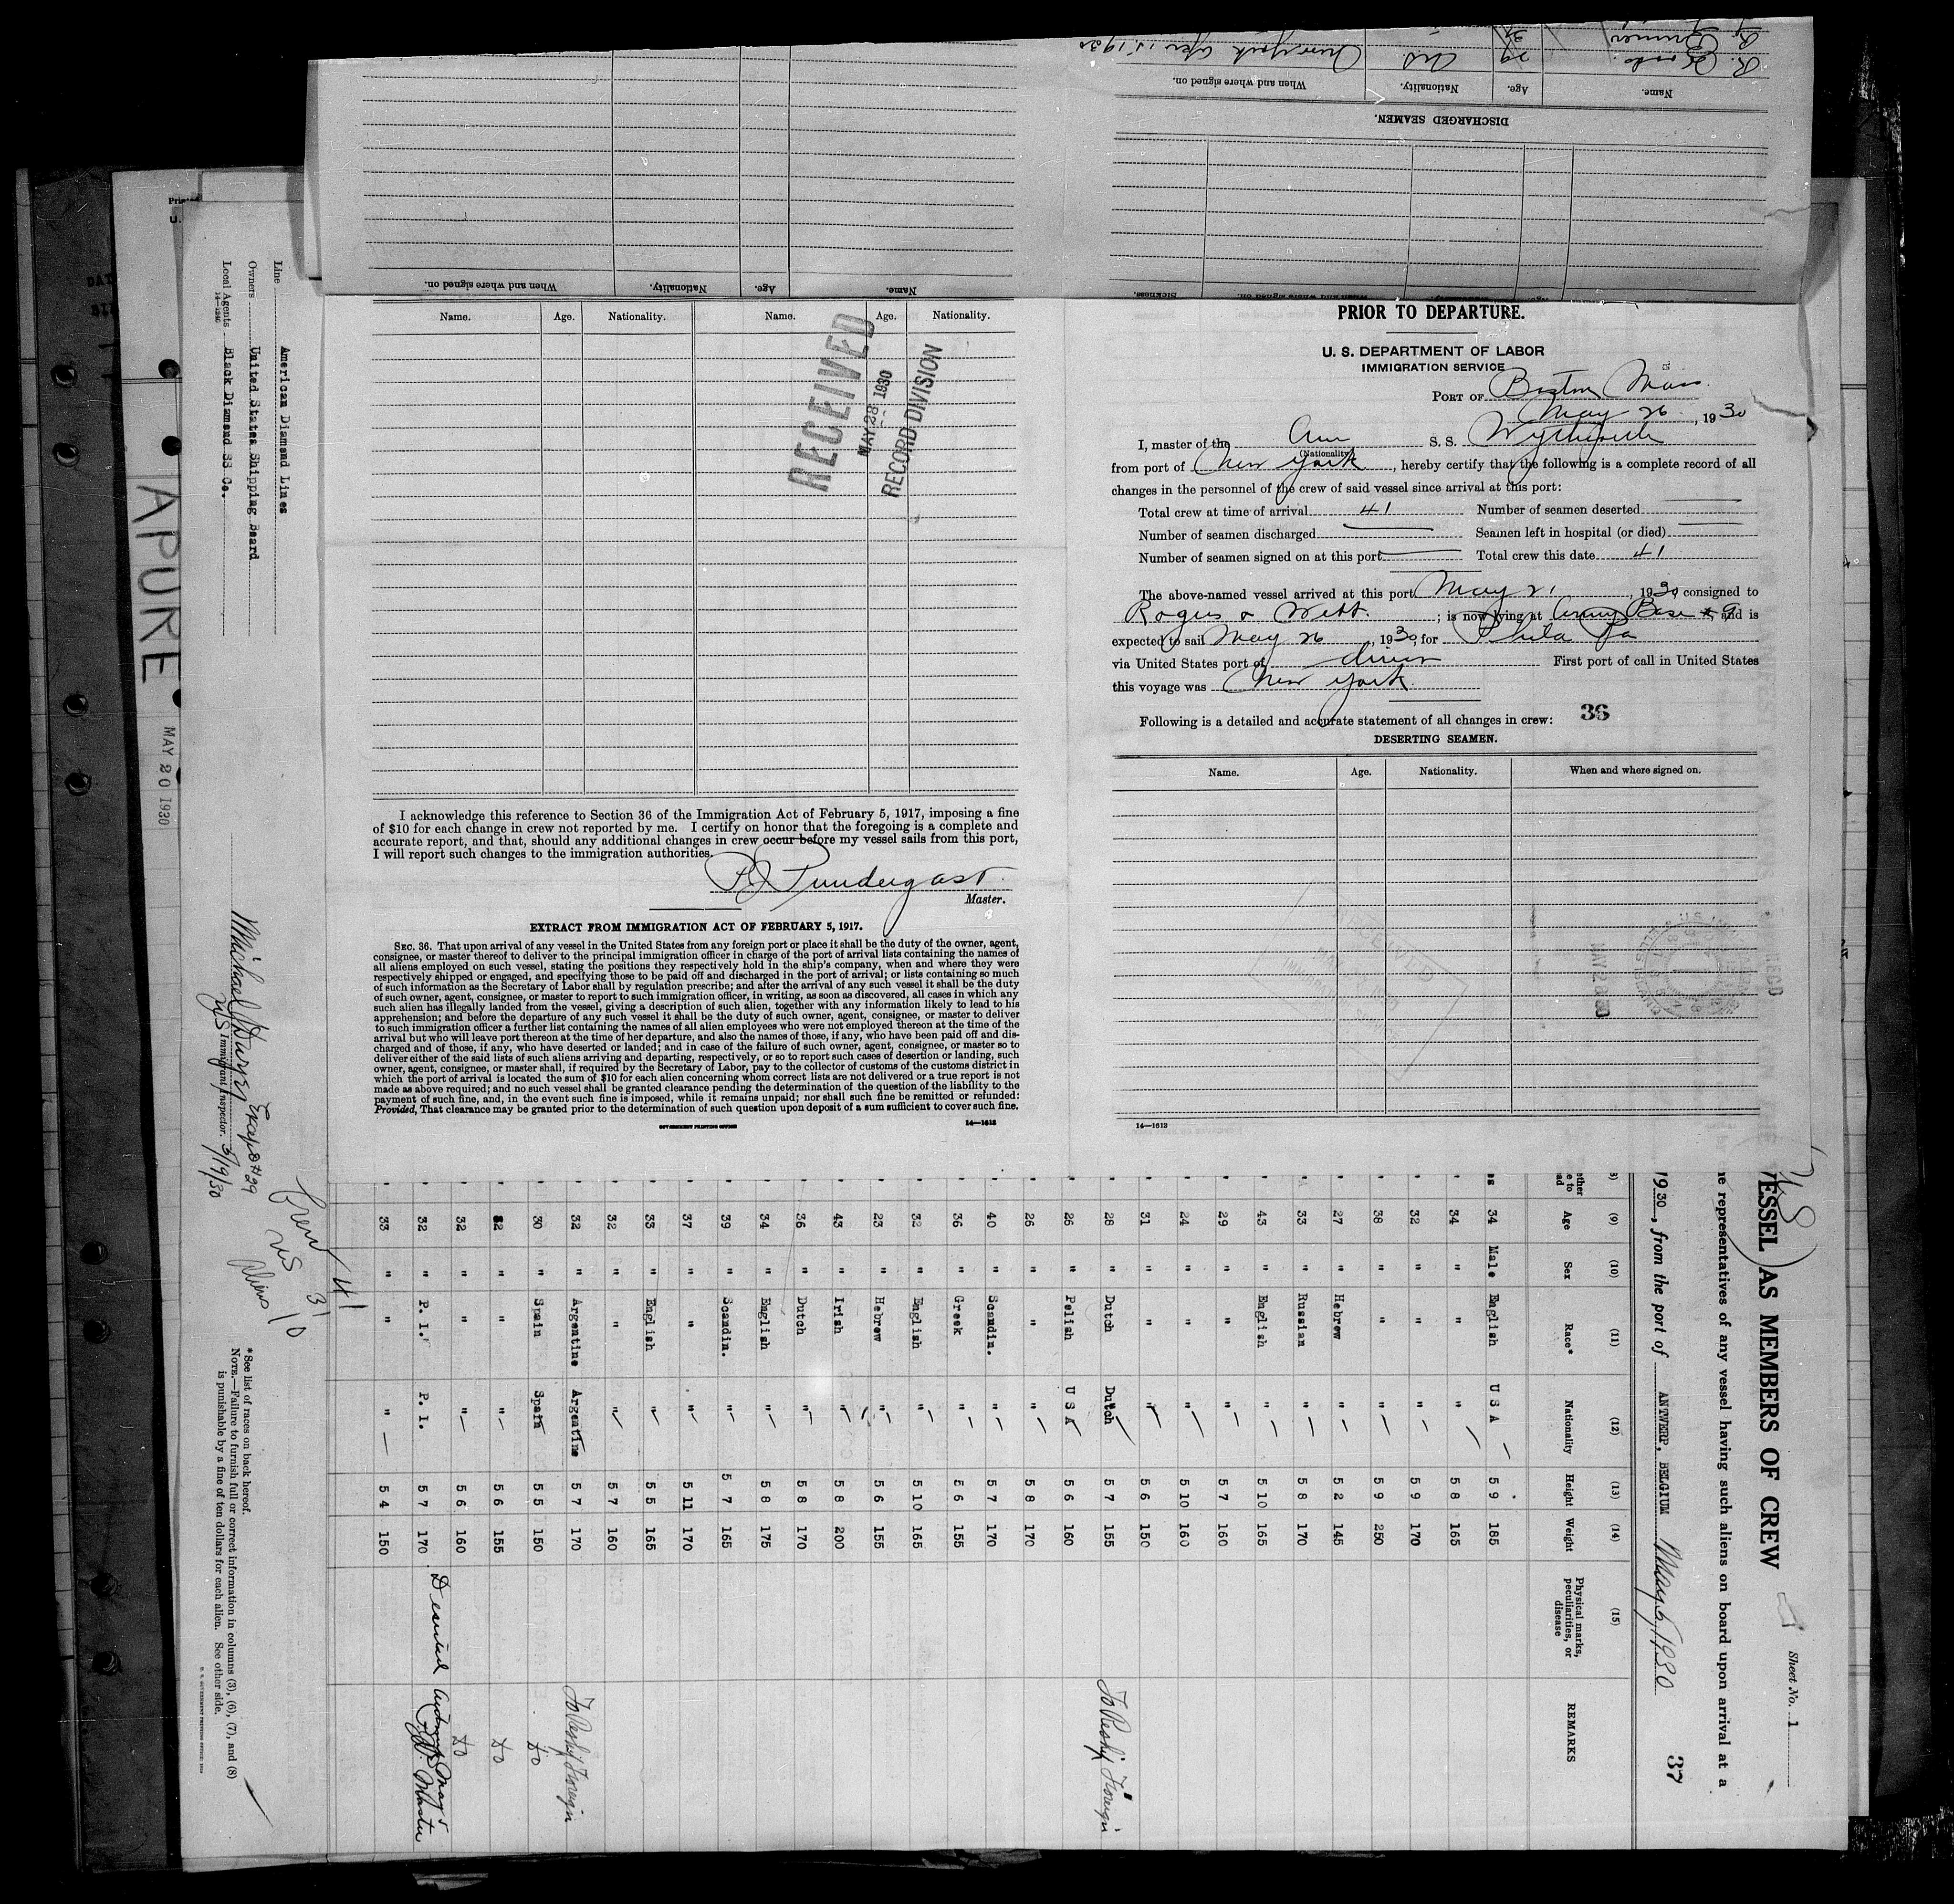 DISCHARGED SEAMEN.
Name.
Age.
Nationality.
When and where signed on.
New York Apr 15 1930
Name.
Age.
Nationality.
When and where signed on.
Name. Age. Nationality. Name. Age. Nationality.
RECEIVED
MAY 28 1930
RECORD DIVISION
I acknowledge this reference to Section 36 of the Immigration Act of February 5, 1917, imposing a fine
of $10 for each change in crew not reported by me. I certify on honor that the foregoing is a complete and
accurate report, and that, should any additional changes in crew occur before my vessel sails from this port,
I will report such changes to the immigration authorities.
Master.
EXTRACT FROM IMMIGRATION ACT OF FEBRUARY 5, 1917.
SEC. 36. That upon arrival of any vessel in the United States from any foreign port or place it shall be the duty of the owner, agent,
consignee, or master thereof to deliver to the principal immigration officer in charge of the port of arrival lists containing the names of
all aliens employed on such vessel, stating the positions they respectively hold in the ship's company, when and where they were
respectively shipped or engaged, and specifying those to be paid off and discharged in the port of arrival; or lists containing so much
of such information as the Secretary of Labor shall by regulation prescribe; and after the arrival of any such vessel it shall be the duty
of such owner, agent, consignee, or master to report to such immigration officer, in writing, as soon as discovered, all cases in which any
such alien has illegally landed from the vessel, giving a description of such alien, together with any information likely to lead to his
apprehension; and before the departure of any such vessel it shall be the duty of such owner, agent, consignee, or master to deliver
to such immigration officer a further list containing the names of all alien employees who were not employed thereon at the time of the
arrival but who will leave port thereon at the time of her departure, and also the names of those, if any, who have been paid off and dis-
charged and of those, if any, who have deserted or landed; and in case of the failure of such owner, agent, consignee, or master so to
deliver either of the said lists of such aliens arriving and departing, respectively, or so to report such cases of desertion or landing, such
owner, agent, consignee, or master shall, if required by the Secretary of Labor, pay to the collector of customs of the customs district in
which the port of arrival is located the sum of $10 for each alien concerning whom correct lists are not delivered or a true report is not
made as above required; and no such vessel shall be granted clearance pending the determination of the question of the liability to the
payment of such fine, and, in the event such fine is imposed, while it remains unpaid; nor shall such fine be remitted or refunded:
Provided, That clearance may be granted prior to the determination of such question upon deposit of a sum sufficient to cover such fine.
GOVERNMENT PRINTING OFFICE 14—1613
PRIOR TO DEPARTURE.
U. S. DEPARTMENT OF LABOR
IMMIGRATION SERVICE
PORT OF Boston Mass.
May 26, 1930
I, master of the Am S. S. Wytheville
(Nationality)
from port of New York, hereby certify that the following is a complete record of all
changes in the personnel of the crew of said vessel since arrival at this port:
Total crew at time of arrival 41 Number of seamen deserted
Number of seamen discharged Seamen left in hospital (or died)
Number of seamen signed on at this port Total crew this date 41
The above-named vessel arrived at this port May 21, 1930, consigned to
Rogers & Webb; is now lying at Army Base # 9 and is
expected to sail May 26, 1930, for Phila Pa
via United States port of direct First port of call in United States
this voyage was New York
Following is a detailed and accurate statement of all changes in crew: 36
DESERTING SEAMEN.
Name. Age. Nationality. When and where signed on.
14—1613
Line American Diamond Lines
Owners United States Shipping Board
Local Agents Black Diamond SS Co.
14—1240
APURE
MAY 20 1930
U S Immigrant Inspector. 5/19/30
Crew 41
US 31
Aliens 10
*See list of races on back hereof.
NOTE.—Failure to furnish full or correct information in columns (3), (6), (7), and (8)
is punishable by a fine of ten dollars for each alien. See other side.
Sheet No. 1
VESSEL AS MEMBERS OF CREW
representatives of any vessel having such aliens on board upon arrival at a
1930, from the port of ANTWERP, BELGIUM May 6, 1930 37
(9) (10) (11) (12) (13) (14) (15)
Age Sex Race* Nationality Height Weight Physical marks, peculiarities, or disease REMARKS
34 Male English U S A 5 9 185
34 " " " 5 8 165
32 " " " 5 9 170
38 " " " 5 9 250
27 " Hebrew " 5 2 145
33 " Russian " 5 8 170
43 " English " 5 10 165
29 " " " 5 7 160
24 " " " 5 10 160
31 " " " 5 6 150
28 " Dutch Dutch 5 7 155 To Reship Foreign
26 " Polish U S A 5 6 160
26 " " " 5 8 170
40 " Scandin. " 5 7 170
36 " Greek " 5 6 155
32 " English " 5 10 165
23 " Hebrew " 5 6 155
43 " Irish " 5 8 200
36 " Dutch " 5 8 170
34 " English " 5 8 175
39 " Scandin. " 5 7 165
37 " " " 5 11 170
33 " English " 5 5 165
32 " " " 5 7 160
32 " Argentine Argentine 5 7 170 To Reship Foreign
30 " Spain Spain 5 5 150 do
32 " " " 5 6 155 do
32 " " " 5 6 160 do
32 " P. I. P. I. 5 7 170 Deserted Antwerp May 5 Master
33 " " " 5 4 150